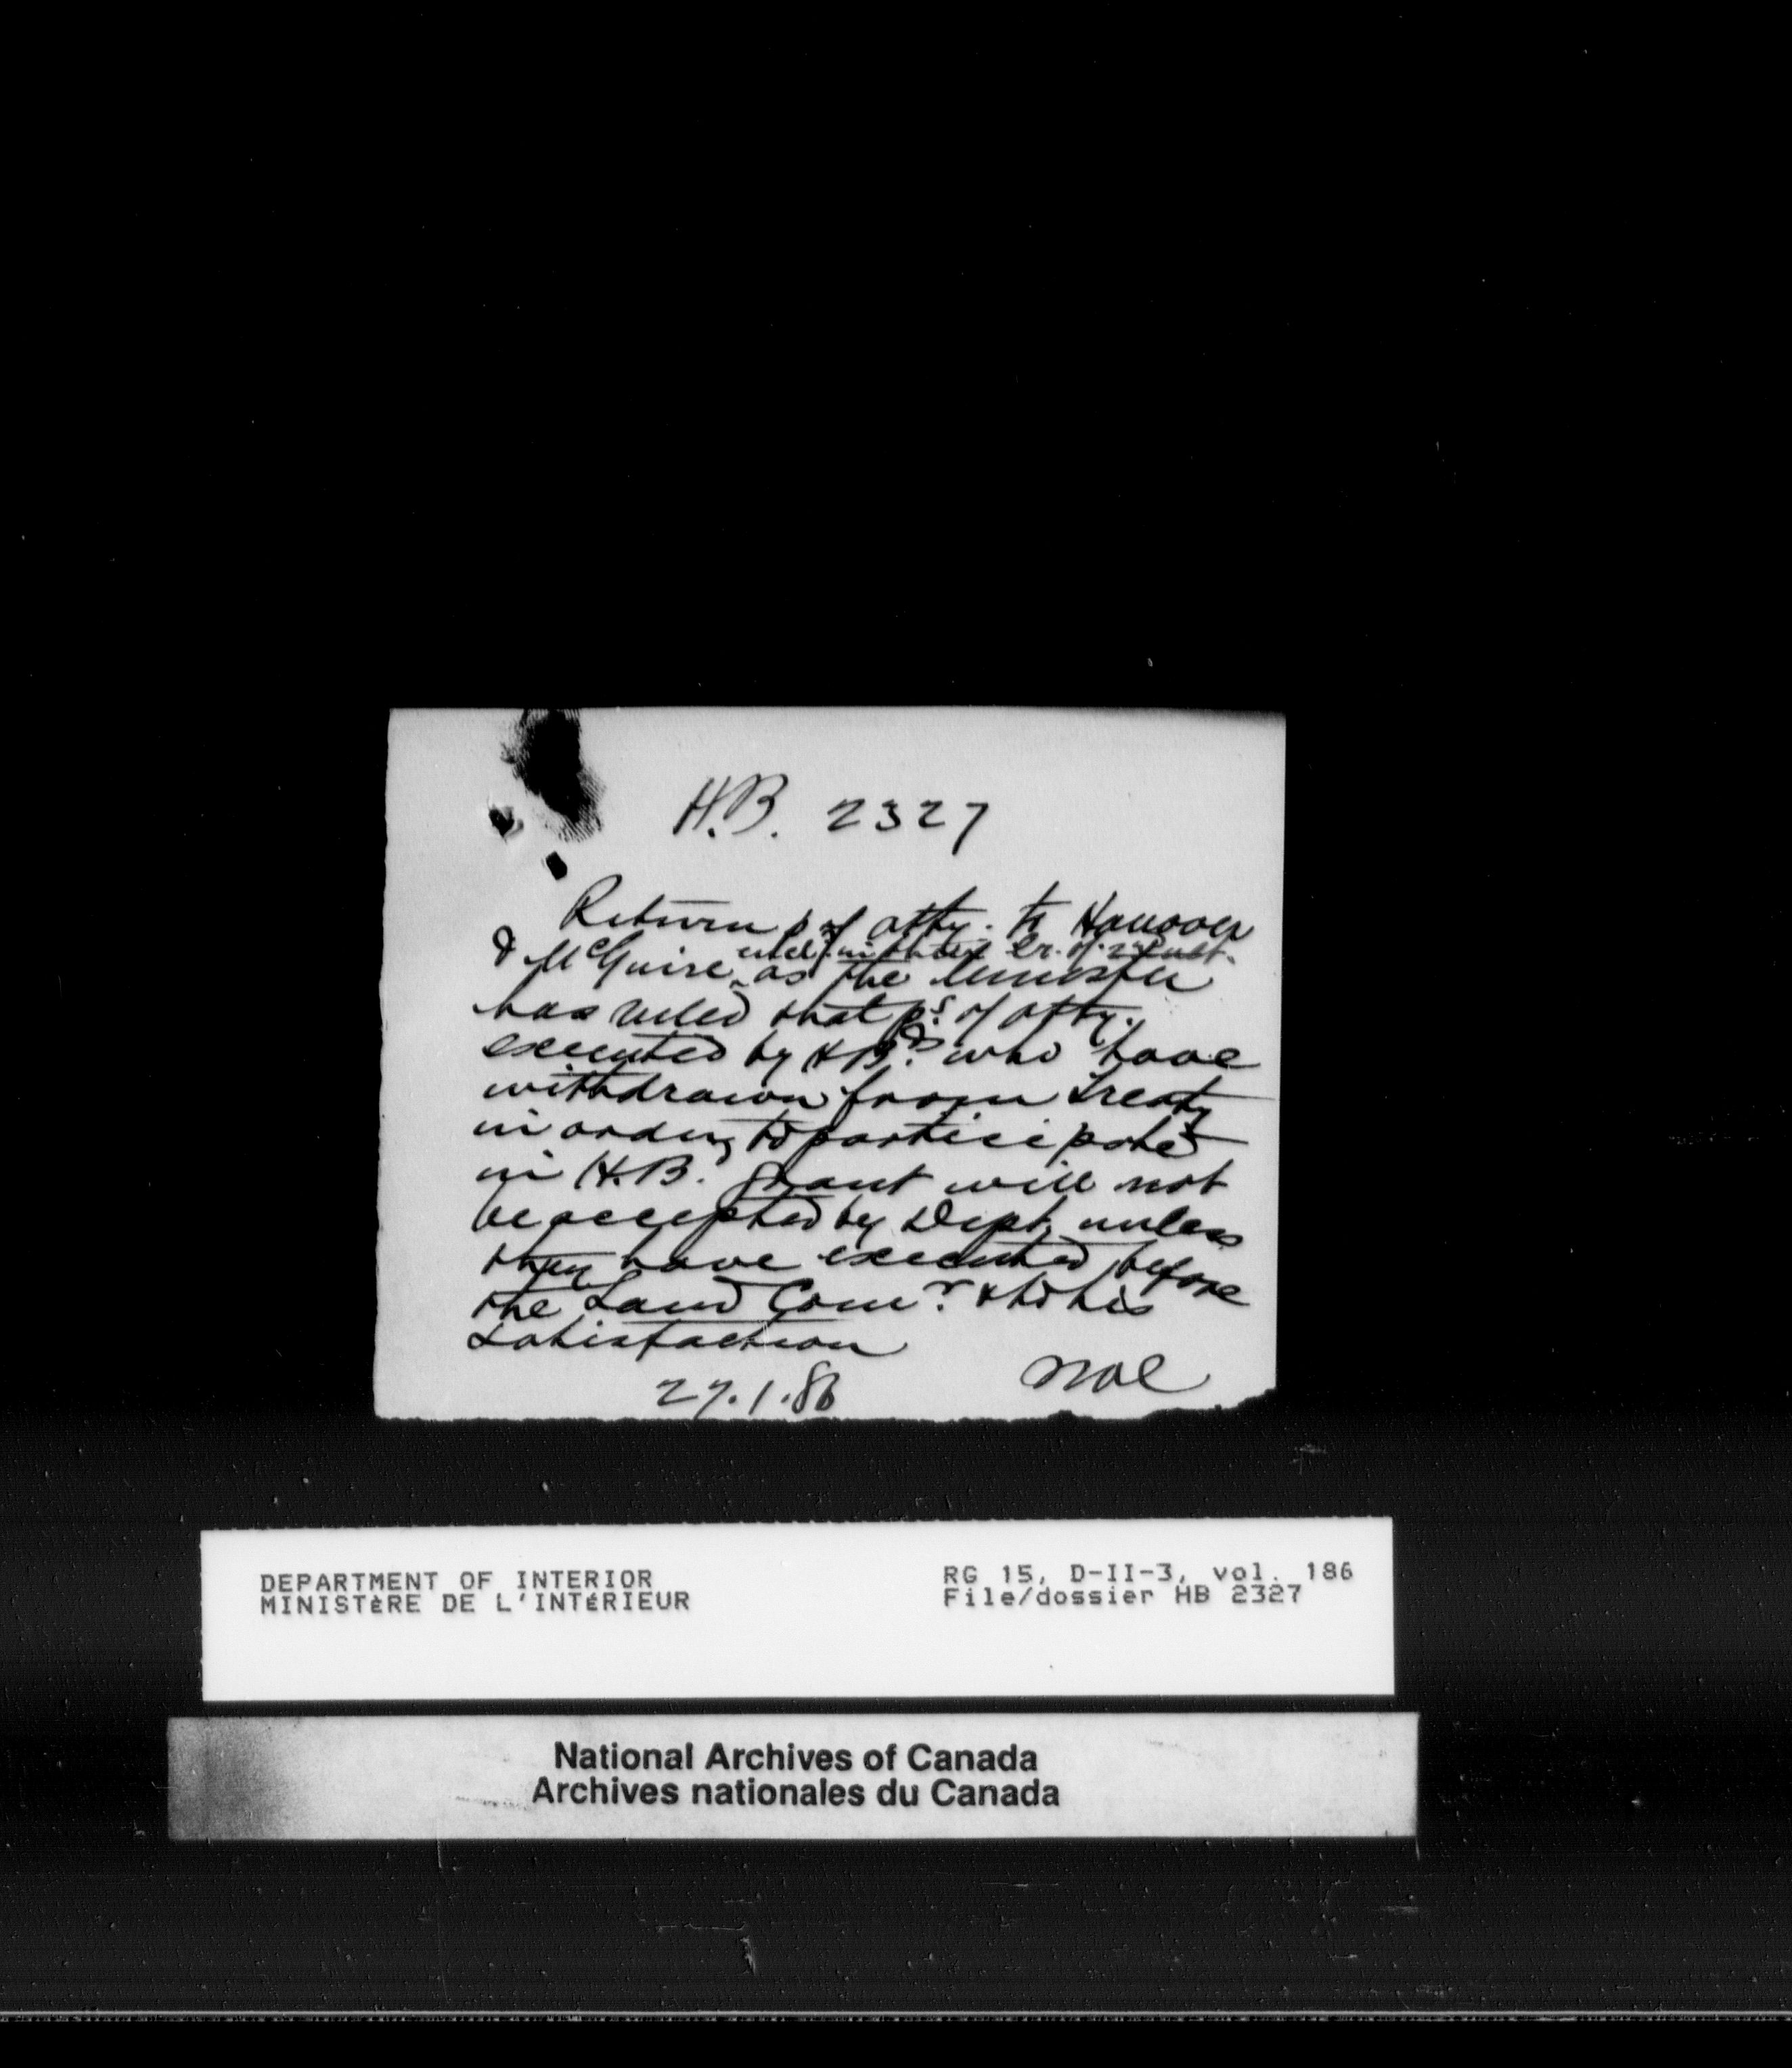 H.B. 2327
Return p of atty. to Hanover
encl. in their lr. of ult.
& McGuire as the Minister
has ruled that p.s of atty.
executed by H B.ds who have
withdrawn from treaty
in order to participate
in H.B. grant will not
be accepted by Dept. unless
they have executed before
the Land Com.r & to his
satisfaction
27.1.86
DEPARTMENT OF INTERIOR
MINISTÈRE DE L'INTÉRIEUR
RG 15, D-II-3, vol. 186
File/dossier HB 2327
National Archives of Canada
Archives nationales du Canada